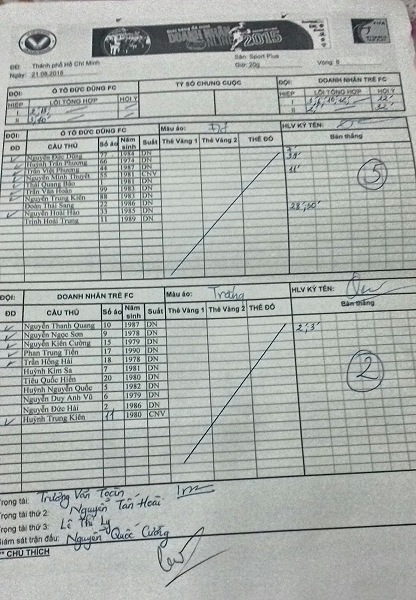 DOANH NHÂN FC
2015
ĐĐ: Thành phố Hồ Chí Minh
Sân: Sport Plus
Vòng: 8
Ngày: 21.08.2015
Giờ: 20g
ĐỘI: Ô TÔ ĐỨC DŨNG FC TỶ SỐ CHUNG CUỘC ĐỘI: DOANH NHÂN TRẺ FC
HIỆP LỖI TỔNG HỢP HỘI Ý HIỆP LỖI TỔNG HỢP HỘI Ý
I I 12'
II II 32'
ĐỘI: Ô TÔ ĐỨC DŨNG FC Màu áo: Đỏ HLV KÝ TÊN:
ĐD CẦU THỦ Số áo Năm sinh Suất Thẻ Vàng 1 Thẻ Vàng 2 THẺ ĐỎ Bàn thắng
Nguyễn Đức Dũng 77 1984 DN
Huỳnh Trần Phương 66 1974 DN
Trần Việt Phương 44 1987 DN
Nguyễn Minh Thuyết 55 1981 CNV
Thái Quang Bảo 1981 DN
Trần Văn Hoàn 99 1983 DN
Nguyễn Trung Kiên 88 1983 DN
Đoàn Thái Sang 22 1986 DN 28', 30'
Nguyễn Hoài Hảo 33 1985 DN
Trịnh Hoài Trung 11 1989 DN
5
ĐỘI: DOANH NHÂN TRẺ FC Màu áo: Trắng HLV KÝ TÊN:
ĐD CẦU THỦ Số áo Năm sinh Suất Thẻ Vàng 1 Thẻ Vàng 2 THẺ ĐỎ Bàn thắng
Nguyễn Thanh Quang 10 1987 DN 2', 3'
Nguyễn Ngọc Sơn 9 1978 DN
Nguyễn Kiên Cường 15 1979 DN
Phan Trung Tiến 17 1990 DN
Trần Hồng Hải 18 1978 DN
Huỳnh Kim Sa 7 1981 DN
Tiêu Quốc Hiền 20 1980 DN
Huỳnh Nguyên Quốc 5 1982 DN
Nguyễn Duy Anh Vũ 6 1979 DN
Nguyễn Đức Hải 2 1986 DN
Huỳnh Trung Kiên 11 1980 CNV
2
Trọng tài: Trương Văn Toàn
Trọng tài thứ 2: Nguyễn Tấn Hoài
Trọng tài thứ 3: Lê Thị Ly
Giám sát trận đấu: Nguyễn Quốc Cường
** CHÚ THÍCH